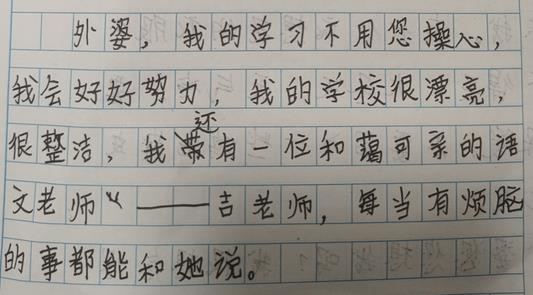 外婆，我的学习不用您操心，
我会好好努力，我的学校很漂亮，
很整洁，我还有一位和蔼可亲的语
文老师——吉老师，每当有烦脑
的事都能和她说。